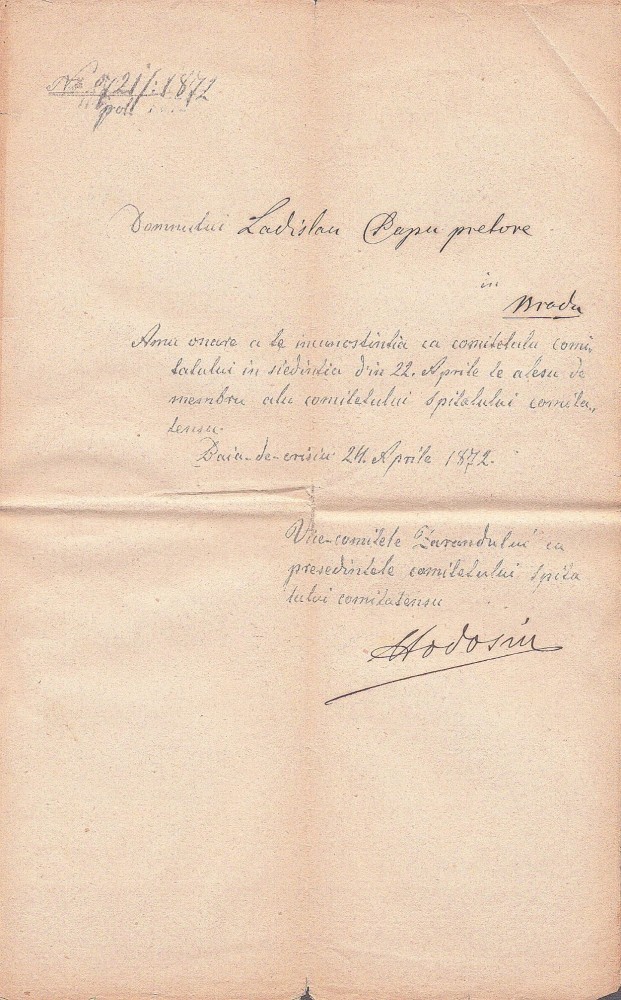 No. 721/: 1872
pol
Domnului Ladislau Papu pretore
in
Bradu
Amu onare a te incunostintia ca comitetulu comi-
tatului in siedintia din 22. Aprile te alesu de
membru alu comitetului spitalului comita-
tensu.
Baia-de-crisiu 24. Aprile 1872.
Vice-comitele Zarandului ca
presedintele comitetului spita
lului comitatensu
Hodosiu